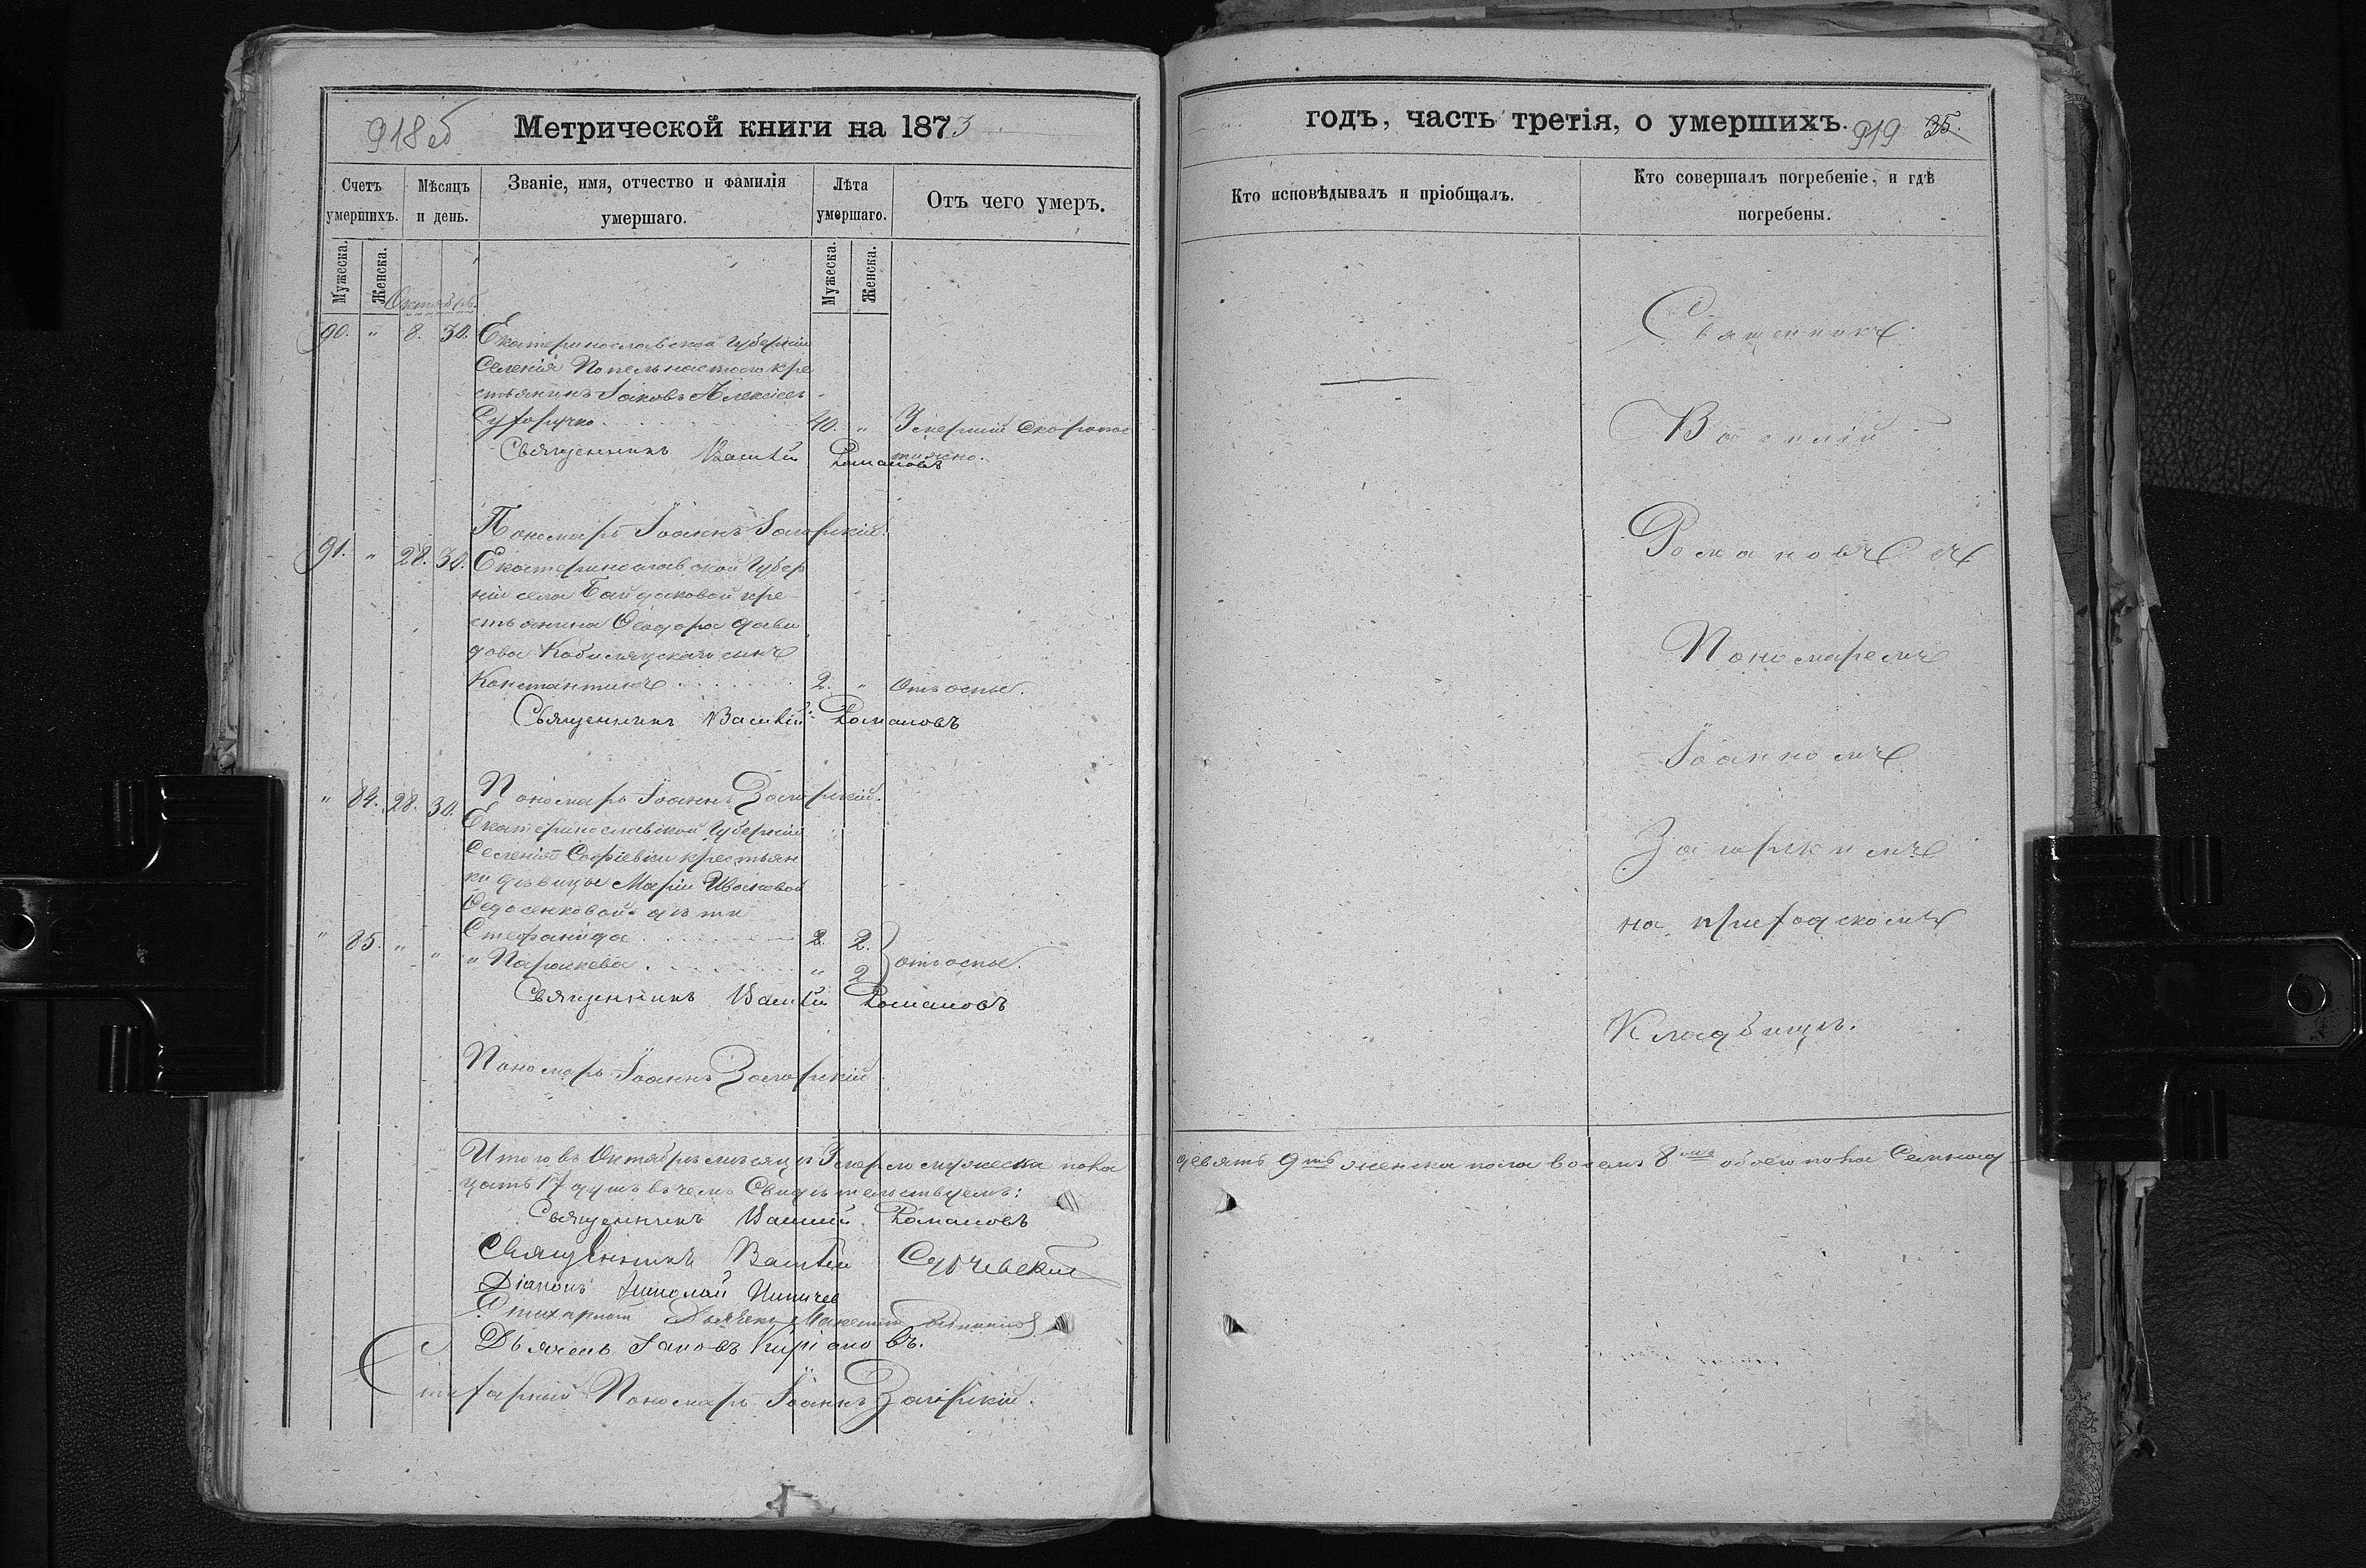 918об
Метрической книги на 1873
Счетъ умершихъ.
Мѣсяцъ и день.
Званіе, имя, отчество и фамилія умершаго.
Лѣта умершаго.
Отъ чего умеръ.
Мужеска.
Женска.
Мужеска.
Женска.
Октябрь.
90. " 8. 30. Екатеринославской Губерніи
Селенія Попельнастого кре
стьянинъ Іаковъ Алексіевъ
40. " Умерший скоропос
тижно.
Священникъ Василій Романовъ
Пономарь Іоаннъ Загорскій.
91. " 28. 30. Екатеринославской Губер
ніи села Байдаковой кре
стьянина Ѳеодора Дави
дова сынъ
Константинъ 2. " Отъ оспы.
Священникъ Василій Романовъ
Пономарь Іоаннъ Загорскій.
" 84. 28. 30. Екатеринославской Губерніи
Селенія Софіевки крестьян
ки дѣвицы Маріи Ивановой
Ѳедосенковой дѣти
Стефанида 2. 2.
" 85. " " " Параскева " 2 отъ оспы.
Священникъ Василій Романовъ
Пономарь Іоаннъ Загорскій
Итого въ Октябрѣ мѣсяцѣ Умерло мужеска пола
цать 17 душъ въ чемъ Свидѣтельствуемъ:
Священникъ Василій Романовъ
Священникъ Василій
Діаконъ Николай
Стихарный Дьячекъ
Дьячекъ Іаковъ Киріаковъ.
Стихарный Пономарь Іоаннъ Загорскій.
годъ, часть третія, о умершихъ.
919 35.
Кто исповѣдывалъ и пріобщалъ.
Кто совершалъ погребеніе, и гдѣ погребены.
Священникъ
Василій
Романовъ съ
Пономаремъ
Іоанномъ
Загорскимъ
на приходскомъ
Кладбищѣ.
девять 9ть женска пола восемь 8мь обоего пола Семнад